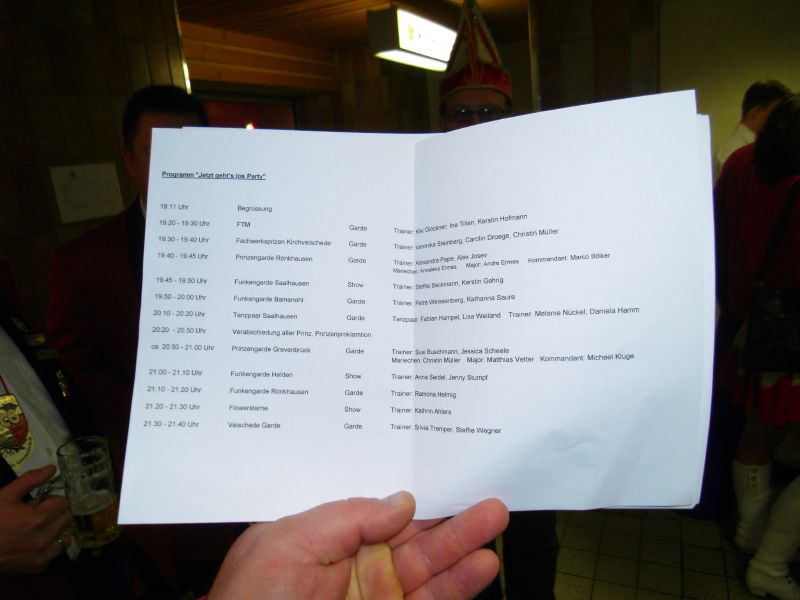 Programm "Jetzt geht's los Party"
19.11 Uhr Begrüssung
19.20 - 19.30 Uhr FTM Garde Trainer: Kiki Glöckner, Ina Tillen, Kerstin Hofmann
19.30 - 19.40 Uhr Fachwerkspitzen Kirchveischede Garde Trainer: Veronika Steinberg, Carolin Droege, Christin Müller
19.40 - 19.45 Uhr Prinzengarde Rönkhausen Garde Trainer: Alexandra Pape, Alex Josev
Mariechen: Annalena Ermes Major: Andre Ermes Kommandant: Marco Bölker
19.45 - 19.50 Uhr Funkengarde Saalhausen Show Trainer: Steffie Beckmann, Kerstin Gehrig
19.50 - 20.00 Uhr Funkengarde Bamenohl Garde Trainer: Petra Weissenberg, Katharina Saure
20.10 - 20.20 Uhr Tanzpaar Saalhausen Garde Tanzpaar: Fabian Hampel, Lisa Weiland Trainer: Melanie Nückel, Daniela Hamm
20.20 - 20.50 Uhr Verabschiedung alter Prinz, Prinzenproklamtion
ca. 20.50 - 21.00 Uhr Prinzengarde Grevenbrück Garde Trainer: Susi Buschmann, Jessica Scheele
Mariechen: Christin Müller Major: Matthias Vetter Kommandant: Michael Kluge
21.00 - 21.10 Uhr Funkengarde Helden Show Trainer: Anna Seidel, Jenny Stumpf
21.10 - 21.20 Uhr Funkengarde Rönkhausen Garde Trainer: Ramona Helmig
21.20 - 21.30 Uhr Flowersterne Show Trainer: Kathrin Ahlers
21.30 - 21.40 Uhr Veischede Garde Garde Trainer: Silvia Tremper, Steffie Wegner